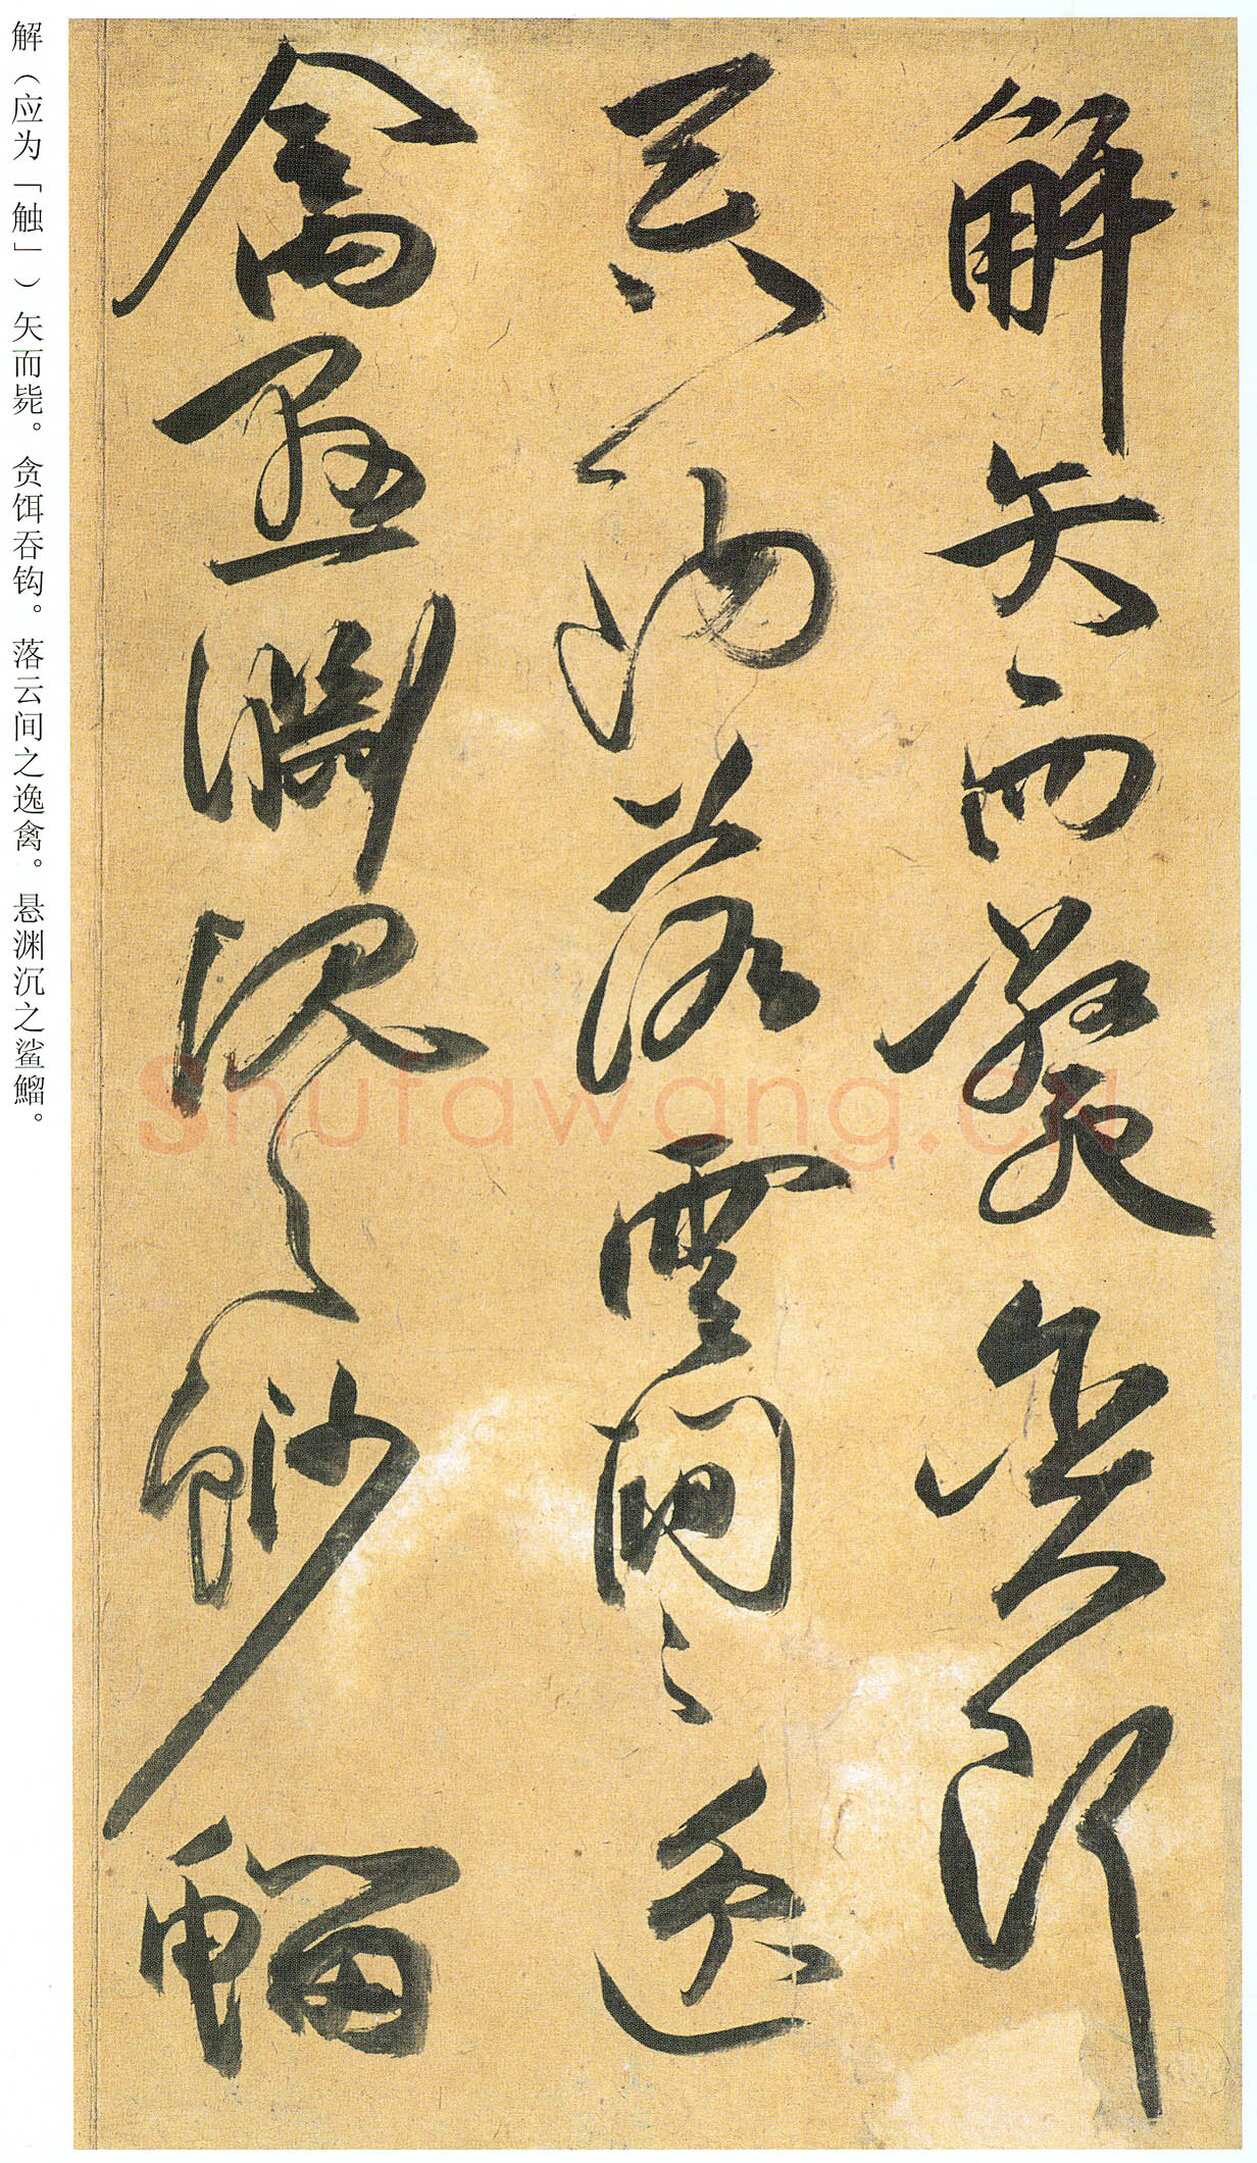 解矢而斃貪餌
吞鉤落雲間之逸
禽懸淵沈之魦鰡
解（应为「触」）矢而毙。贪饵吞钩。落云间之逸禽。悬渊沉之鲨鰡。
Shufawang.cn